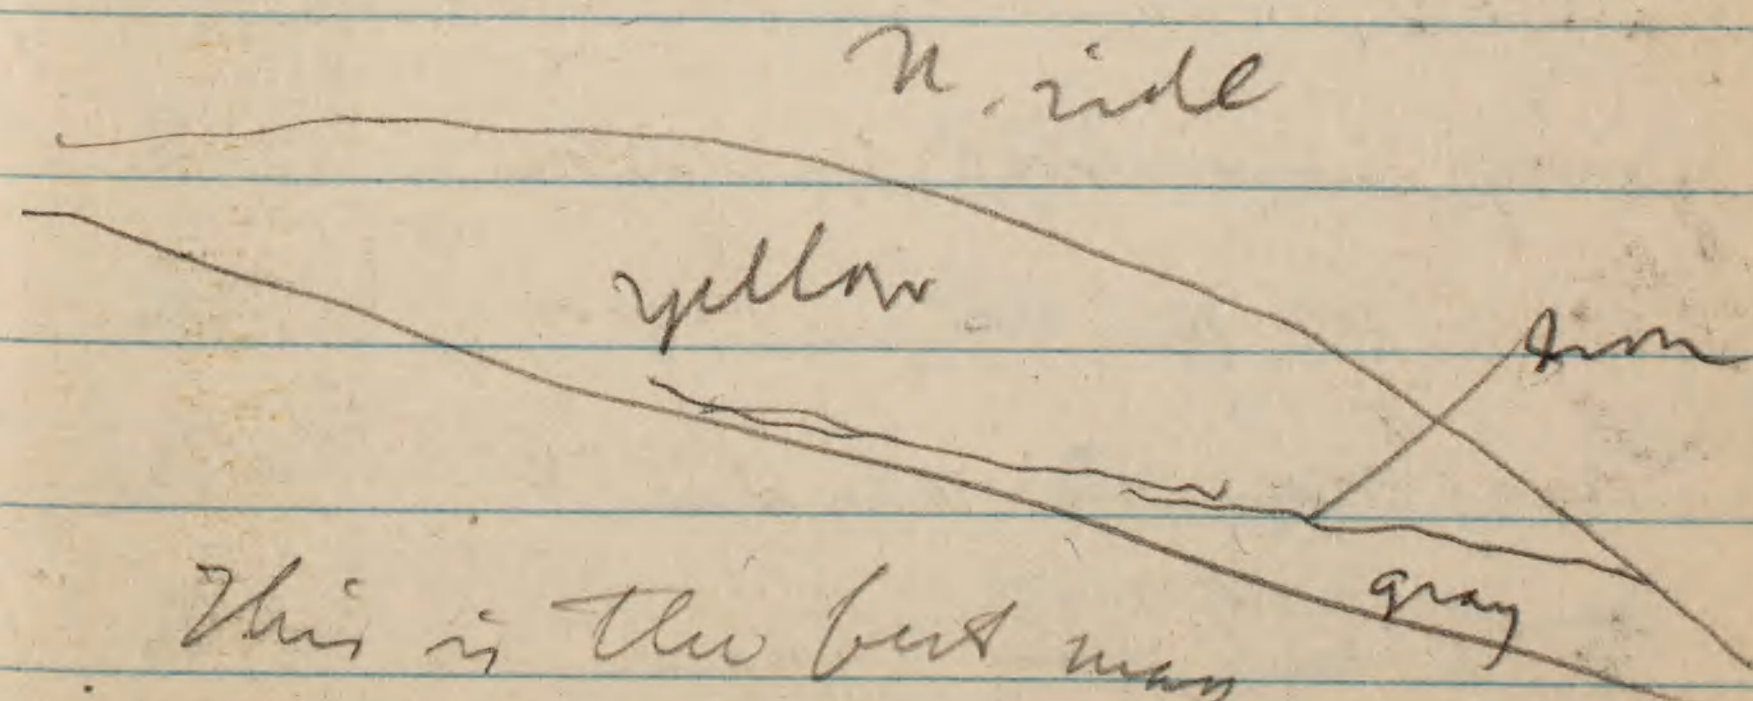 N. side
yellow
iron
gray
This is the best way